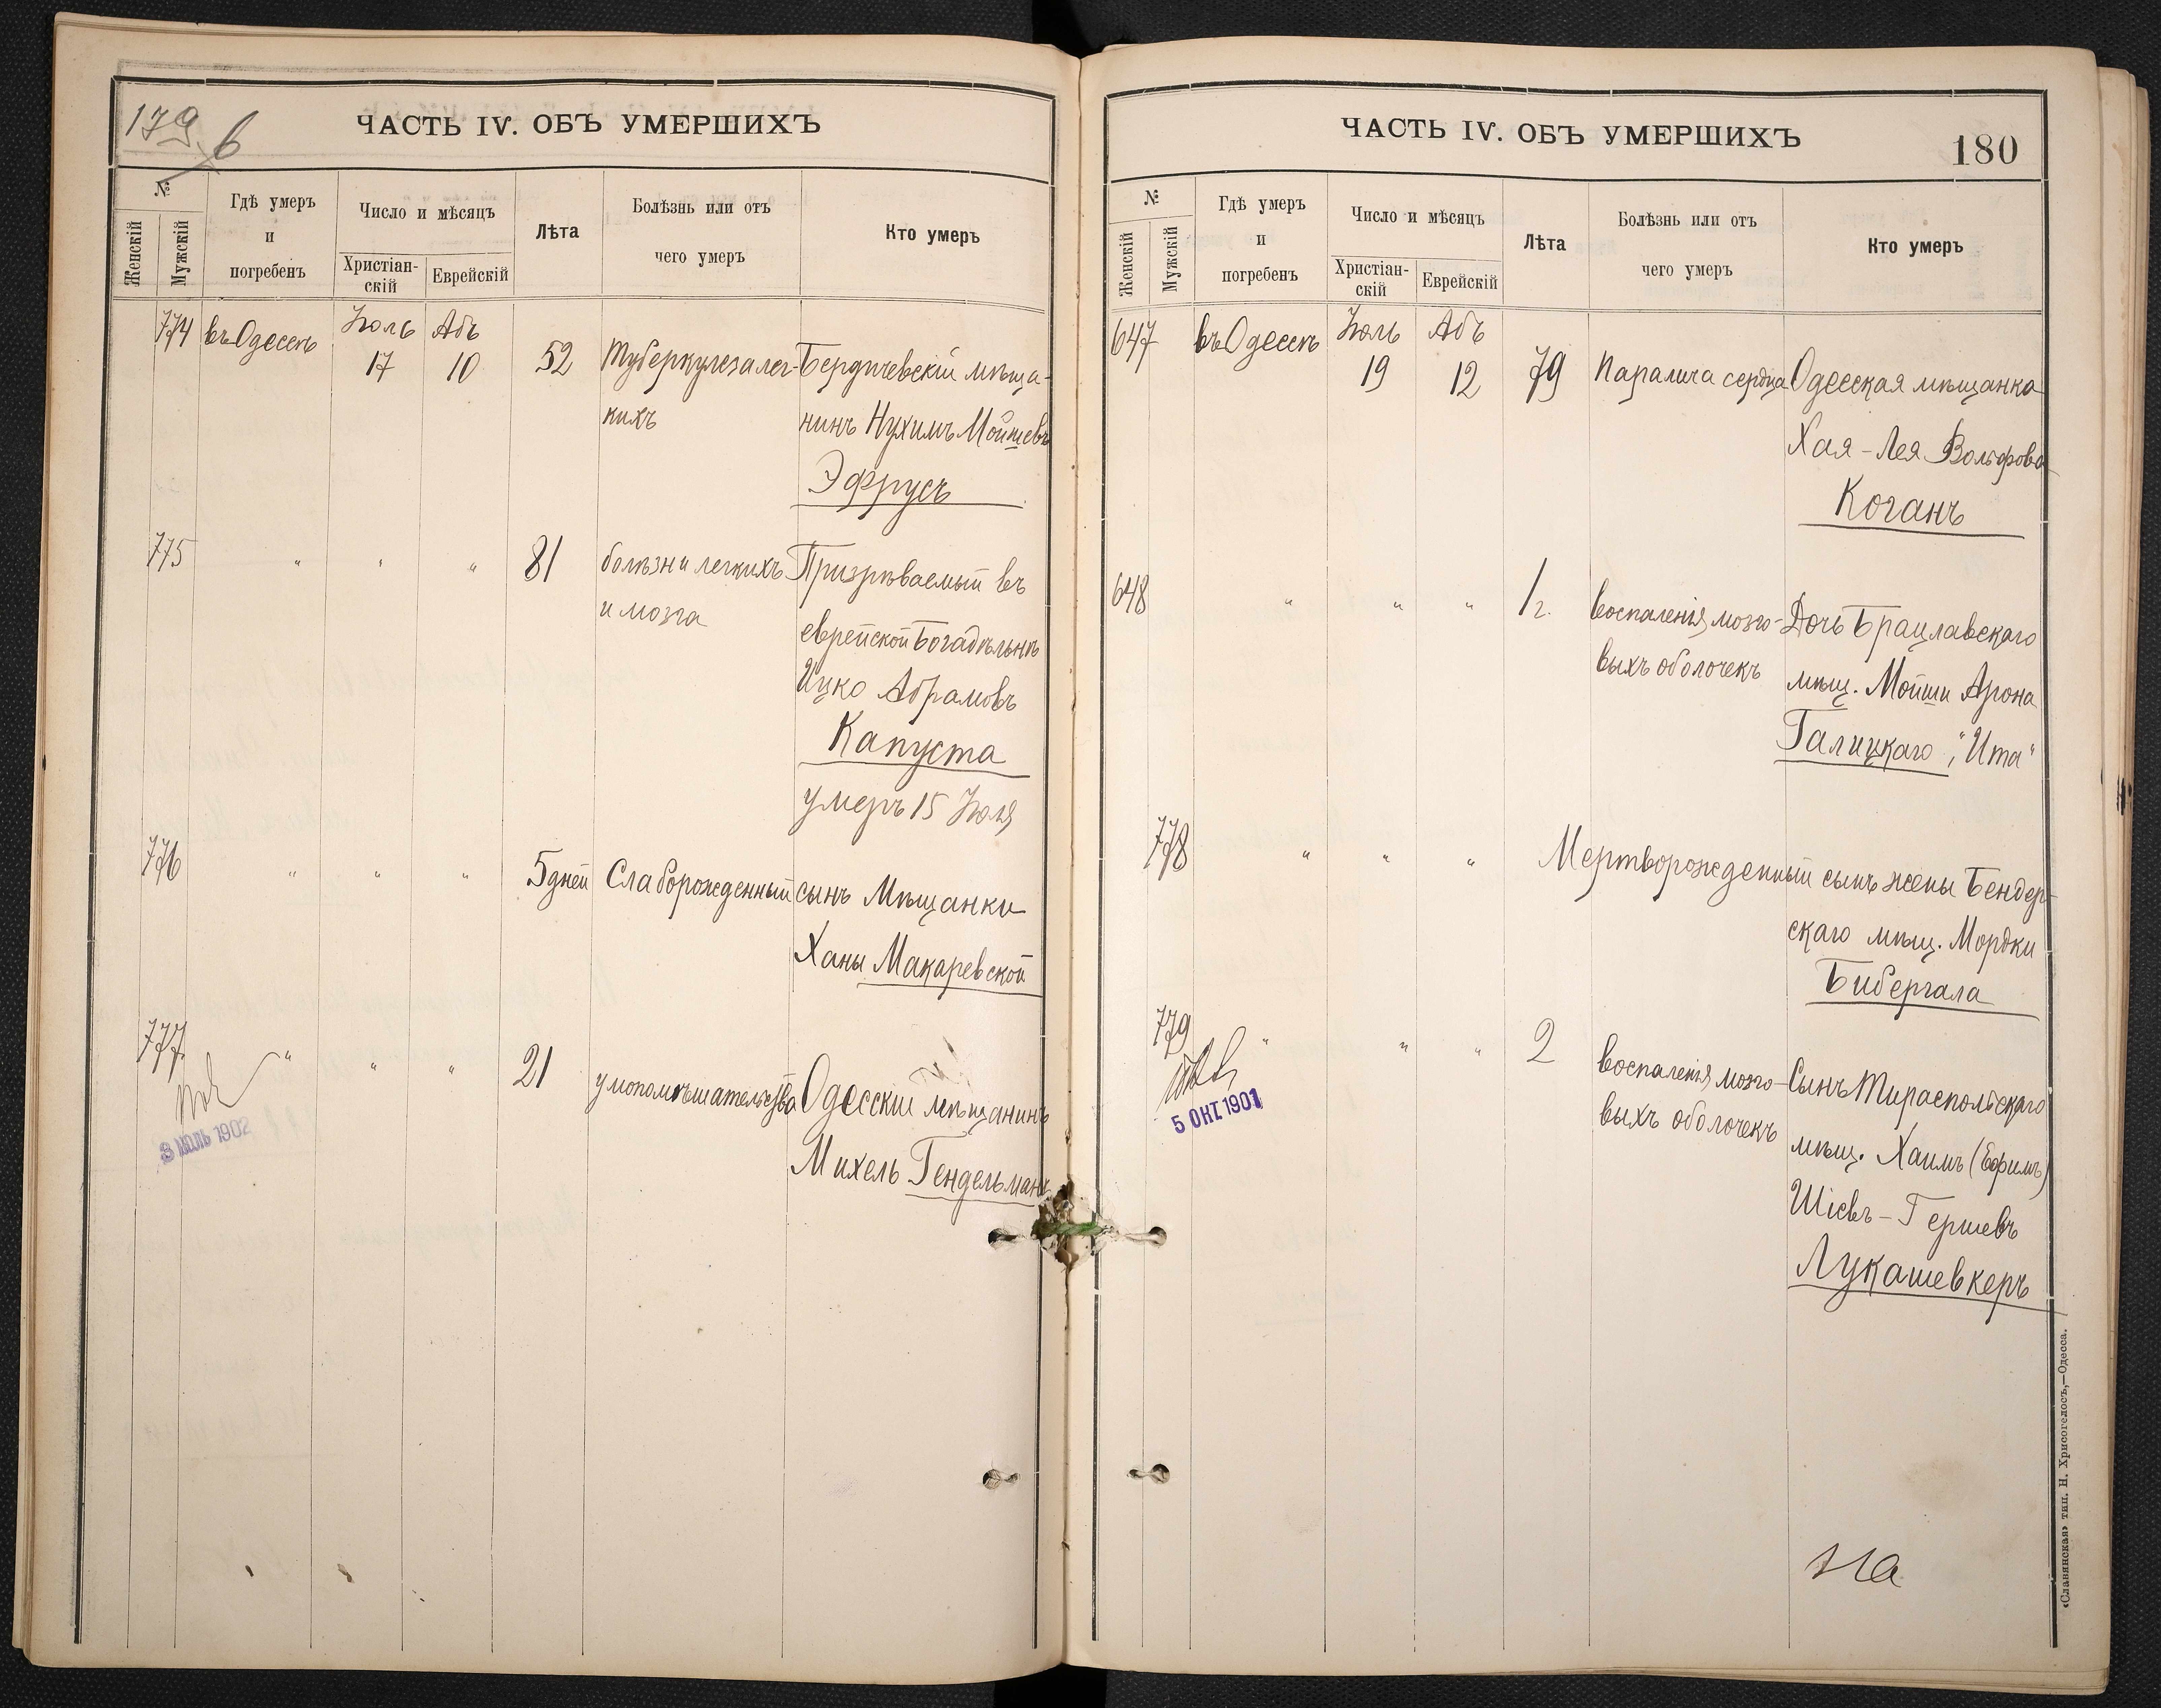 179 в
ЧАСТЬ IV. ОБЪ УМЕРШИХЪ
№
Женскій
Мужскій
Гдѣ умеръ
и
погребенъ
Число и мѣсяцъ
Христіан-
скій
Еврейскій
Лѣта
Болѣзнь или отъ
чего умеръ
Кто умеръ
774 въ Одессѣ Іюль Абъ
17 10 52 Туберкулеза лег- Бердичевскій мѣща-
кихъ нинъ Нухимъ Мойшевъ
Эфрусъ
775 " " " 81 болѣзни легкихъ Призрѣваемый въ
и мозга еврейской Богадѣльнѣ
Ицко Абрамовъ
Капуста
умеръ 15 Іюля
776 " " " 5 дней Слаборожденный сынъ Мѣщанки
Ханы Макаревской
777 " " " 21 умопомѣшательства Одесскій мѣщанинъ
Михель Гендельманъ
8 ІЮЛЬ 1902
ЧАСТЬ IV. ОБЪ УМЕРШИХЪ
180
№
Женскій
Мужскій
Гдѣ умеръ
и
погребенъ
Число и мѣсяцъ
Христіан-
скій
Еврейскій
Лѣта
Болѣзнь или отъ
чего умеръ
Кто умеръ
647 въ Одессѣ Іюль Абъ
19 12 79 Паралича сердца Одесская мѣщанка
Хая-Лея Вольфова
Коганъ
648 " " " 1 г. воспаленія мозго- Дочь Брацлавскаго
выхъ оболочекъ мѣщ. Мойши Арона
Галицкаго, "Ита"
778 " " " Мертворожденный сынъ жены Бендер-
скаго мѣщ. Мордки
Бибергала
779 " " " 2 воспаленія мозго- Сынъ Тираспольскаго
выхъ оболочекъ мѣщ. Хаимъ (Ефимъ)
Шіевъ-Гершевъ
Лукашевкеръ
5 ОКТ 1901
На
«Славянская» тип. Н. Хрисогелосъ,—Одесса.